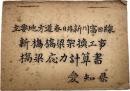 主要地方道春日井新川富田線
新橋橋梁架換工事
橋梁応力計算書
愛知県